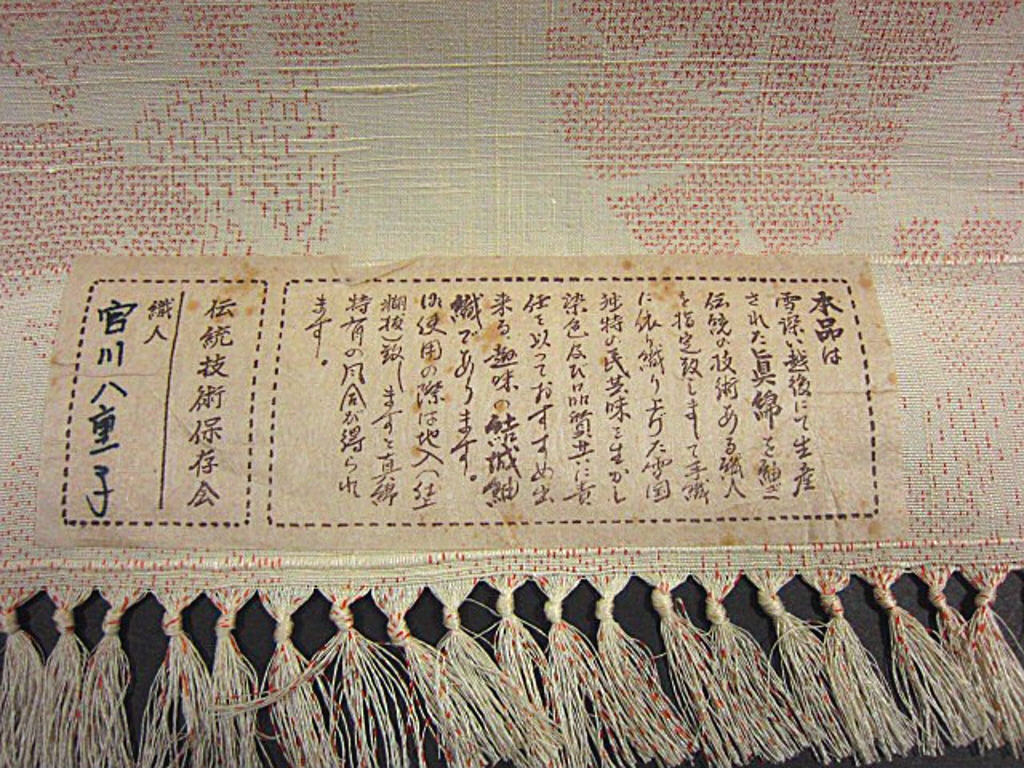 本品は
雪深い越後にて生産
された眞綿を紬ぎ
伝統の技術ある織人
を指定致しまして手織
に依り織り上げた雪国
独特の民芸味を生かし
染色及び品質共に責
任を以っておすすめ出
来る趣味の結城紬
織であります。
御使用の際は地入(経
糊抜)致しますと真綿
特有の風合が得られ
ます。
伝統技術保存会
織人
宮川八重子